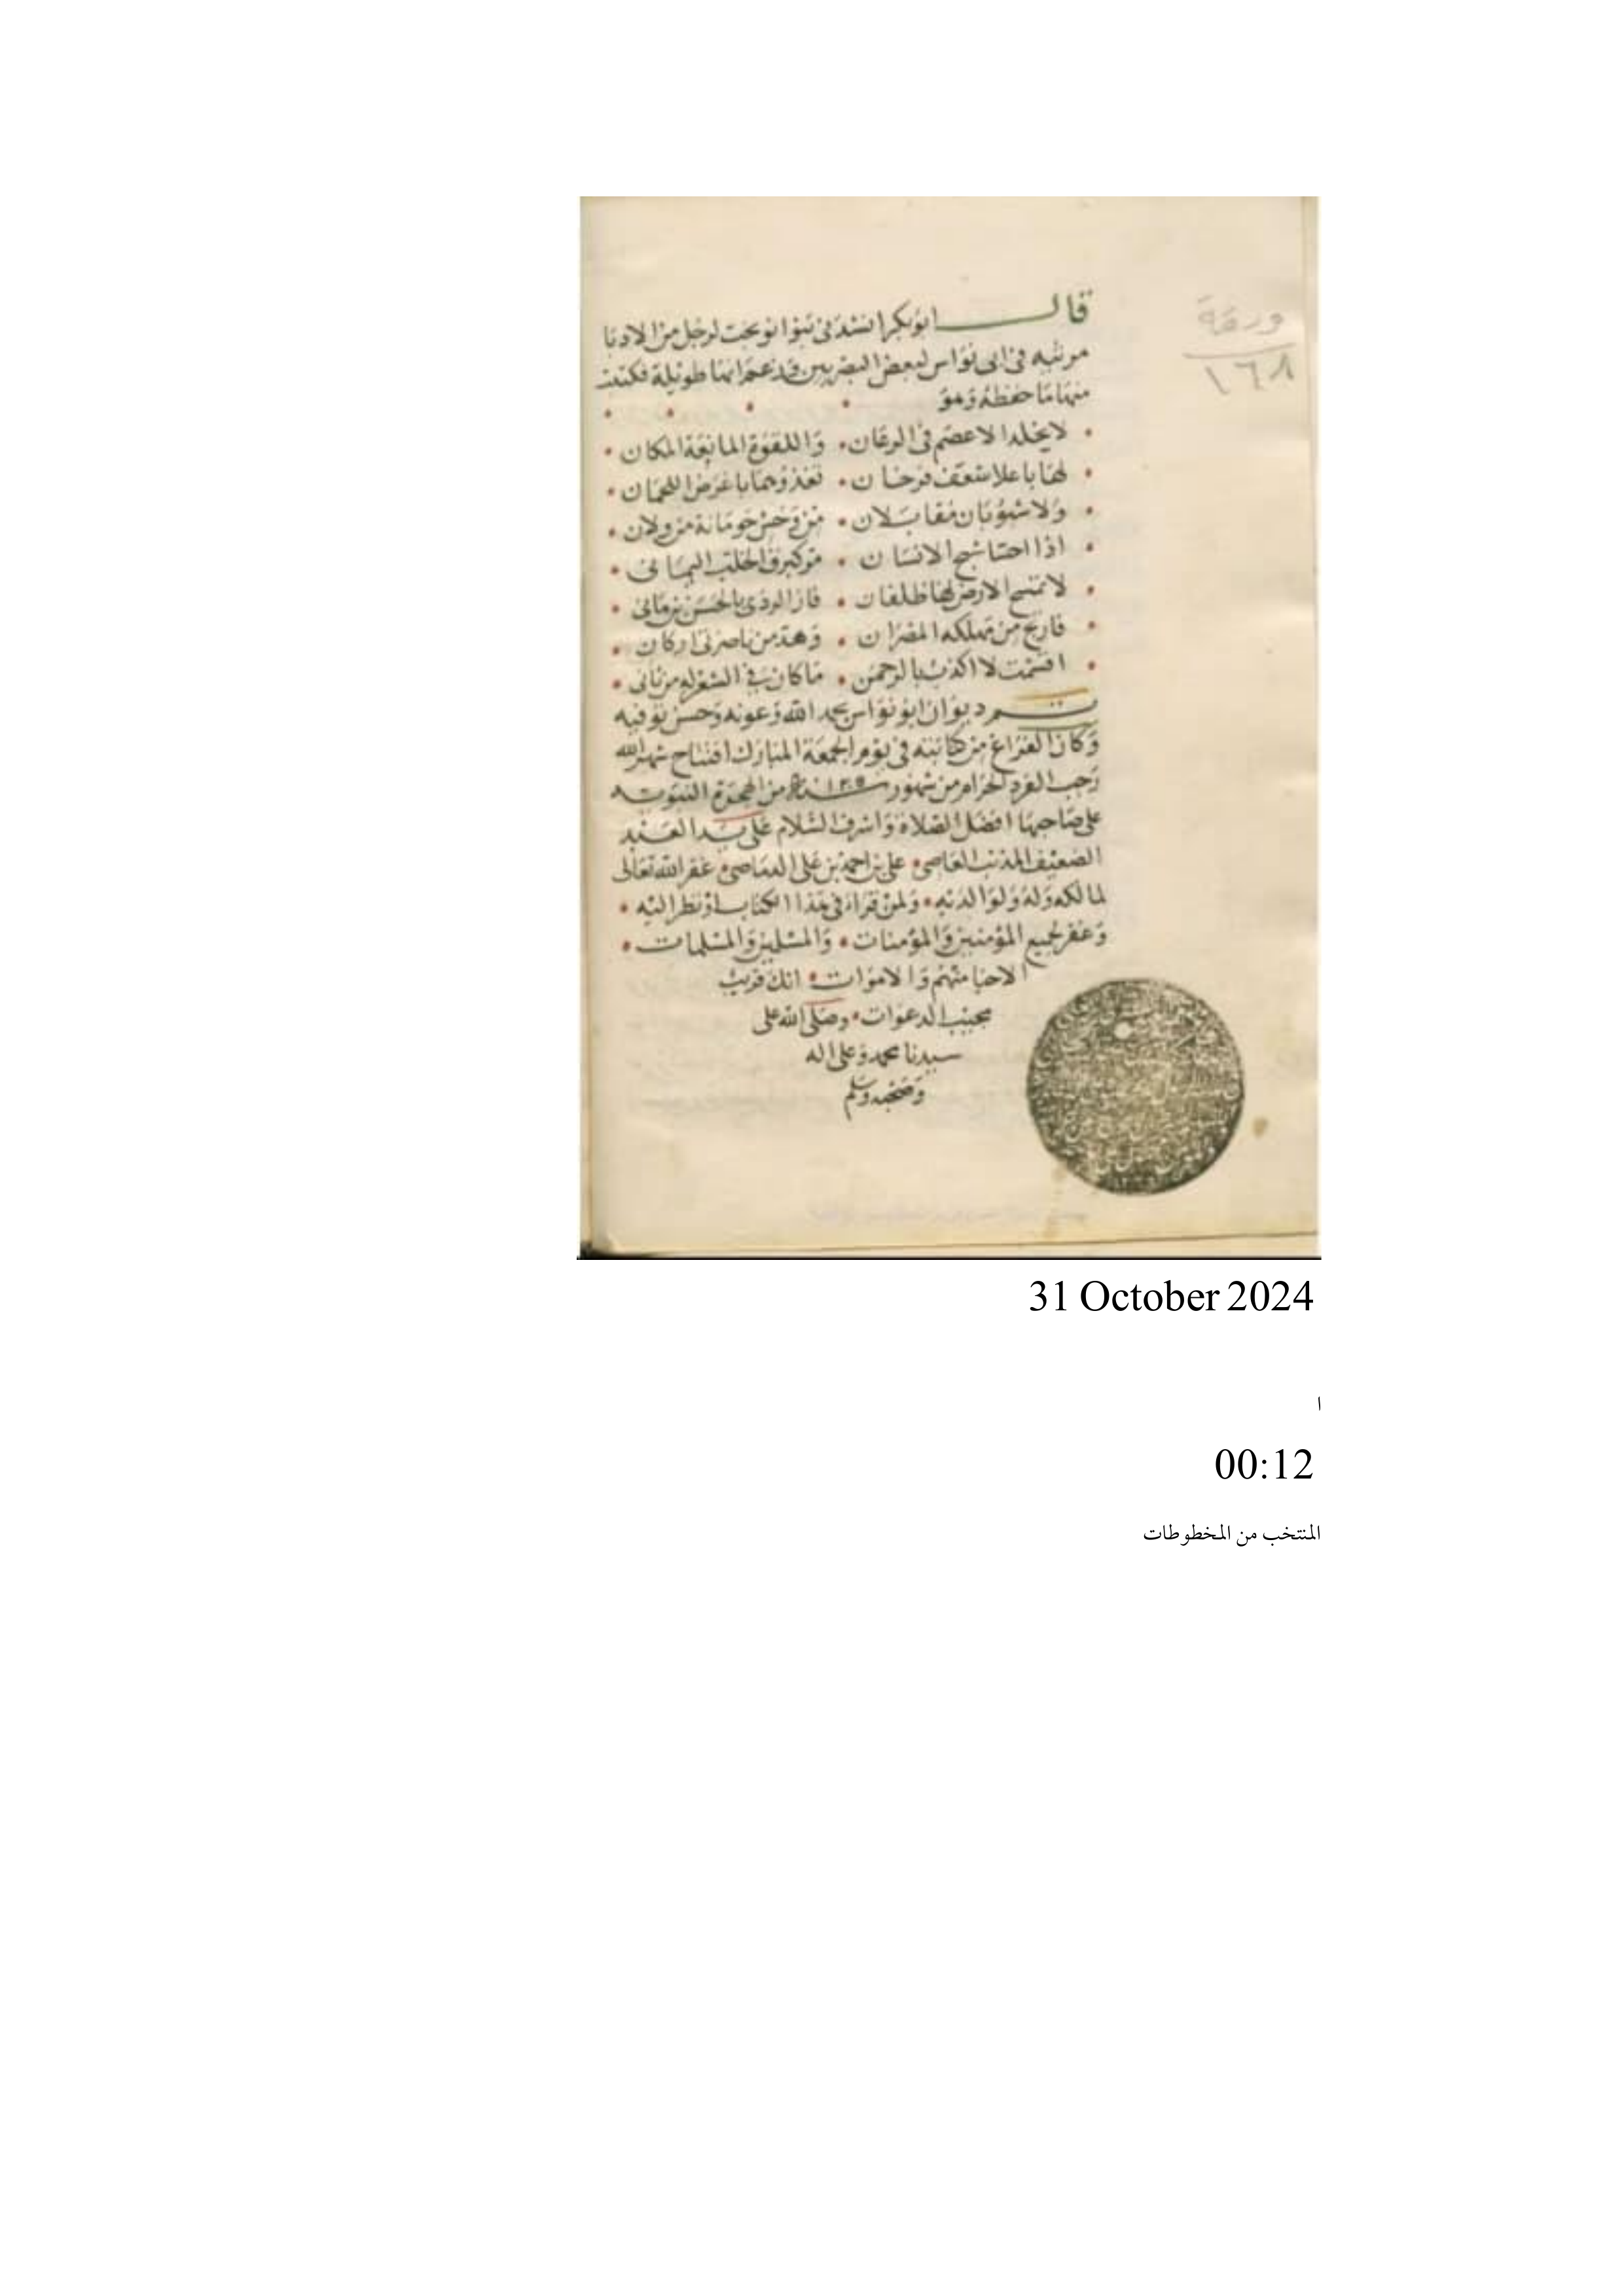 قال ابو بكر انشدني بنوا نوبخت لرجل من الادبا
مرثيه في ابي نواس لبعض البصريين قد زعم انها طويلة فكتبت
منها ما حفظه وهو
لا يخلد الاعصم في الرعان واللقوة المانعة المكان
لها باعلا شعف فرخان تغذوهما باغرض اللحمان
ولا شبوبان مقابلان من وحش حومانة من ولان
اذا احتا شبح الانسان
لا تمتح الارض لها ظلفان فاز الردى بالحسن بن هاني
فارتج من مهلكه المصران وهد من ناصرتي اركان
اقسمت لا اكذب بالرحمن ما كان في الشعر له من ثاني
تم ديوان ابو نواس بحمد الله وعونه وحسن توفيقه
وكان الفراغ من كتابته في يوم الجمعة المبارك افتتاح شهر الله
رجب الفرد الحرام من شهور سنة من الهجرة النبوية
على صاحبها افضل الصلاة واشرف السلام على يد العبد
الضعيف المذنب العاصي علي بن احمد بن علي غفر الله تعالى
لمالكه وله ولوالديه ولمن قرا في هذا الكتاب او نظر اليه
وغفر لجميع المؤمنين والمؤمنات والمسلمين والمسلمات
الاحيا منهم والاموات انك قريب
مجيب الدعوات وصلى الله على
سيدنا محمد وعلى اله
وصحبه وسلم
ورقة
١٦٨
31 October 2024
ا
00:12
المنتخب من المخطوطات